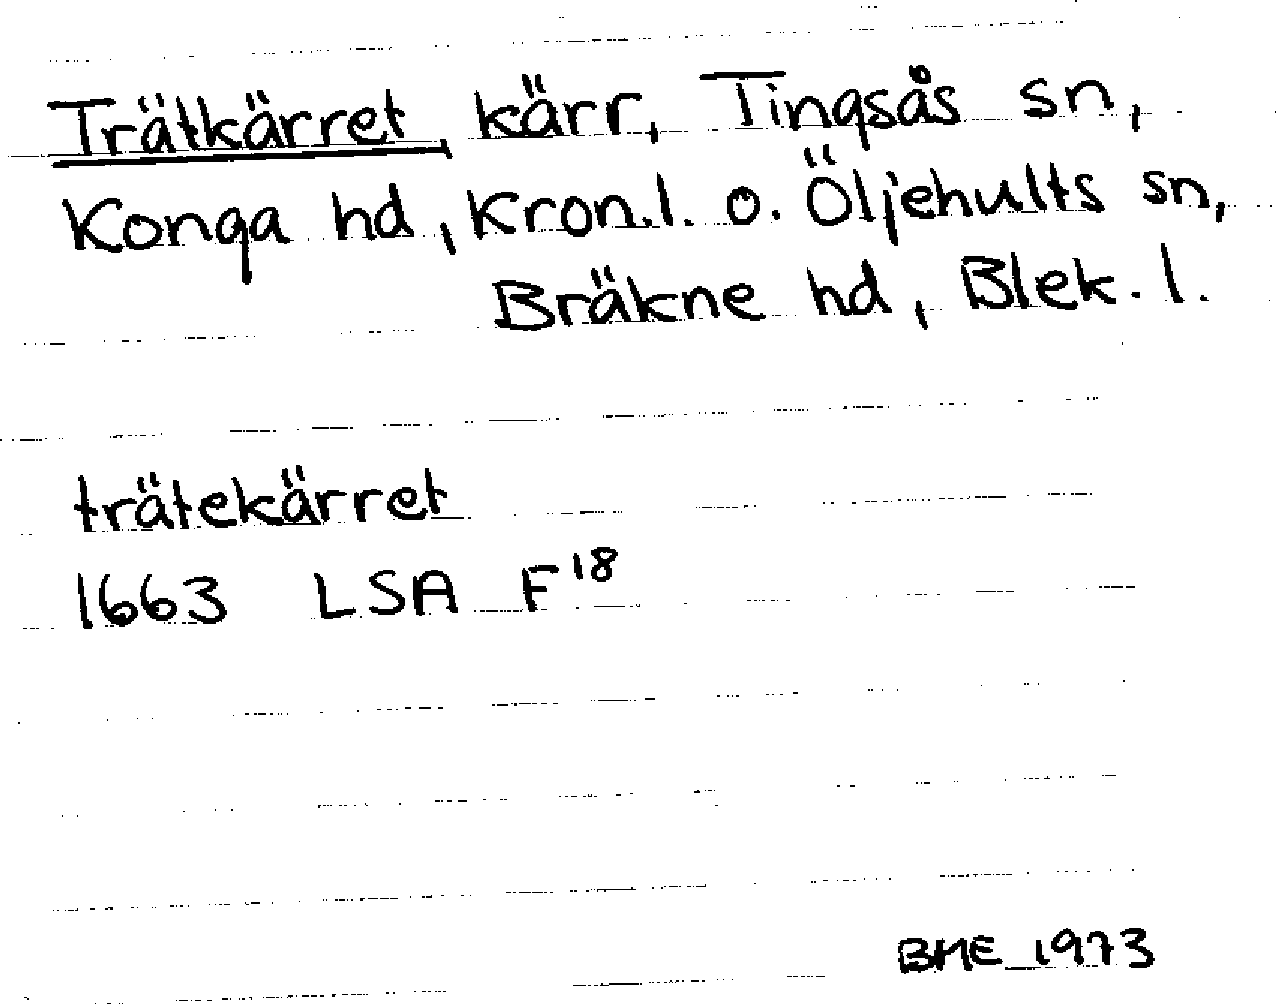 Trätkärret, kärr, Tingsås sn,
Konga hd, Kron.l. o. Öljehults sn,
Bräkne hd, Blek. l.
trätekärret
1663 LSA F¹⁸
BHE 1973